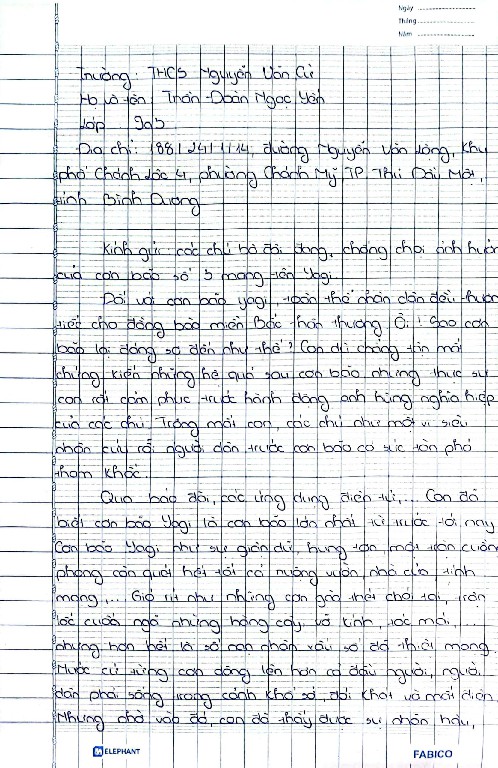 Ngày
Tháng
Năm
Trường: THCS Nguyễn Văn Cừ
Họ và tên: Trần Đoàn Ngọc Yến
Lớp 9a5
Địa chỉ: 188/24/1/14, đường Nguyễn Văn Lộng, Khu
phố Chánh Lộc 4, phường Chánh Mỹ, TP. Thủ Dầu Một,
tỉnh Bình Dương
Kính gửi các chú bộ đội đang chống chọi ảnh hưởn
của cơn bão số 3 mang tên Yagi.
Đối với cơn bão yagi, toàn thể nhân dân đều thươ
tiếc cho đồng bào miền Bắc thân thương. Ôi! Sao cơn
bão lại đáng sợ đến như thế? Con dù chẳng tận mắt
chứng kiến những hệ quả sau cơn bão nhưng thực sự
con rất cảm phục trước hành động anh hùng nghĩa hiệp
của các chú. Trong mắt con, các chú như một vị siêu
nhân cứu rỗi người dân trước cơn bão có sức tàn phá
thảm khốc.
Qua báo đài, các ứng dụng điện tử,... Con đã
biết cơn bão Yagi là cơn bão lớn nhất từ trước tới nay.
Cơn bão Yagi như sự giận dữ, hung tợn, một trận cuồng
phong càn quét hết tất cả ruộng vườn, nhà cửa, tính
mạng,... Gió rít như những cơn gào thét chói tai, trận
lốc cuốn ngã những hàng cây, vỡ kính, tốc mái,...
nhưng hơn hết là số con nhân xấu số đã thiệt mạng.
Nước cứ từng cơn dâng lên hơn cả đầu người, người
dân phải sống trong cảnh khổ sở, đói khát và mất điện.
Nhưng nhờ vào đó, con đã thấy được sự nhân hậu,
ELEPHANT
FABICO